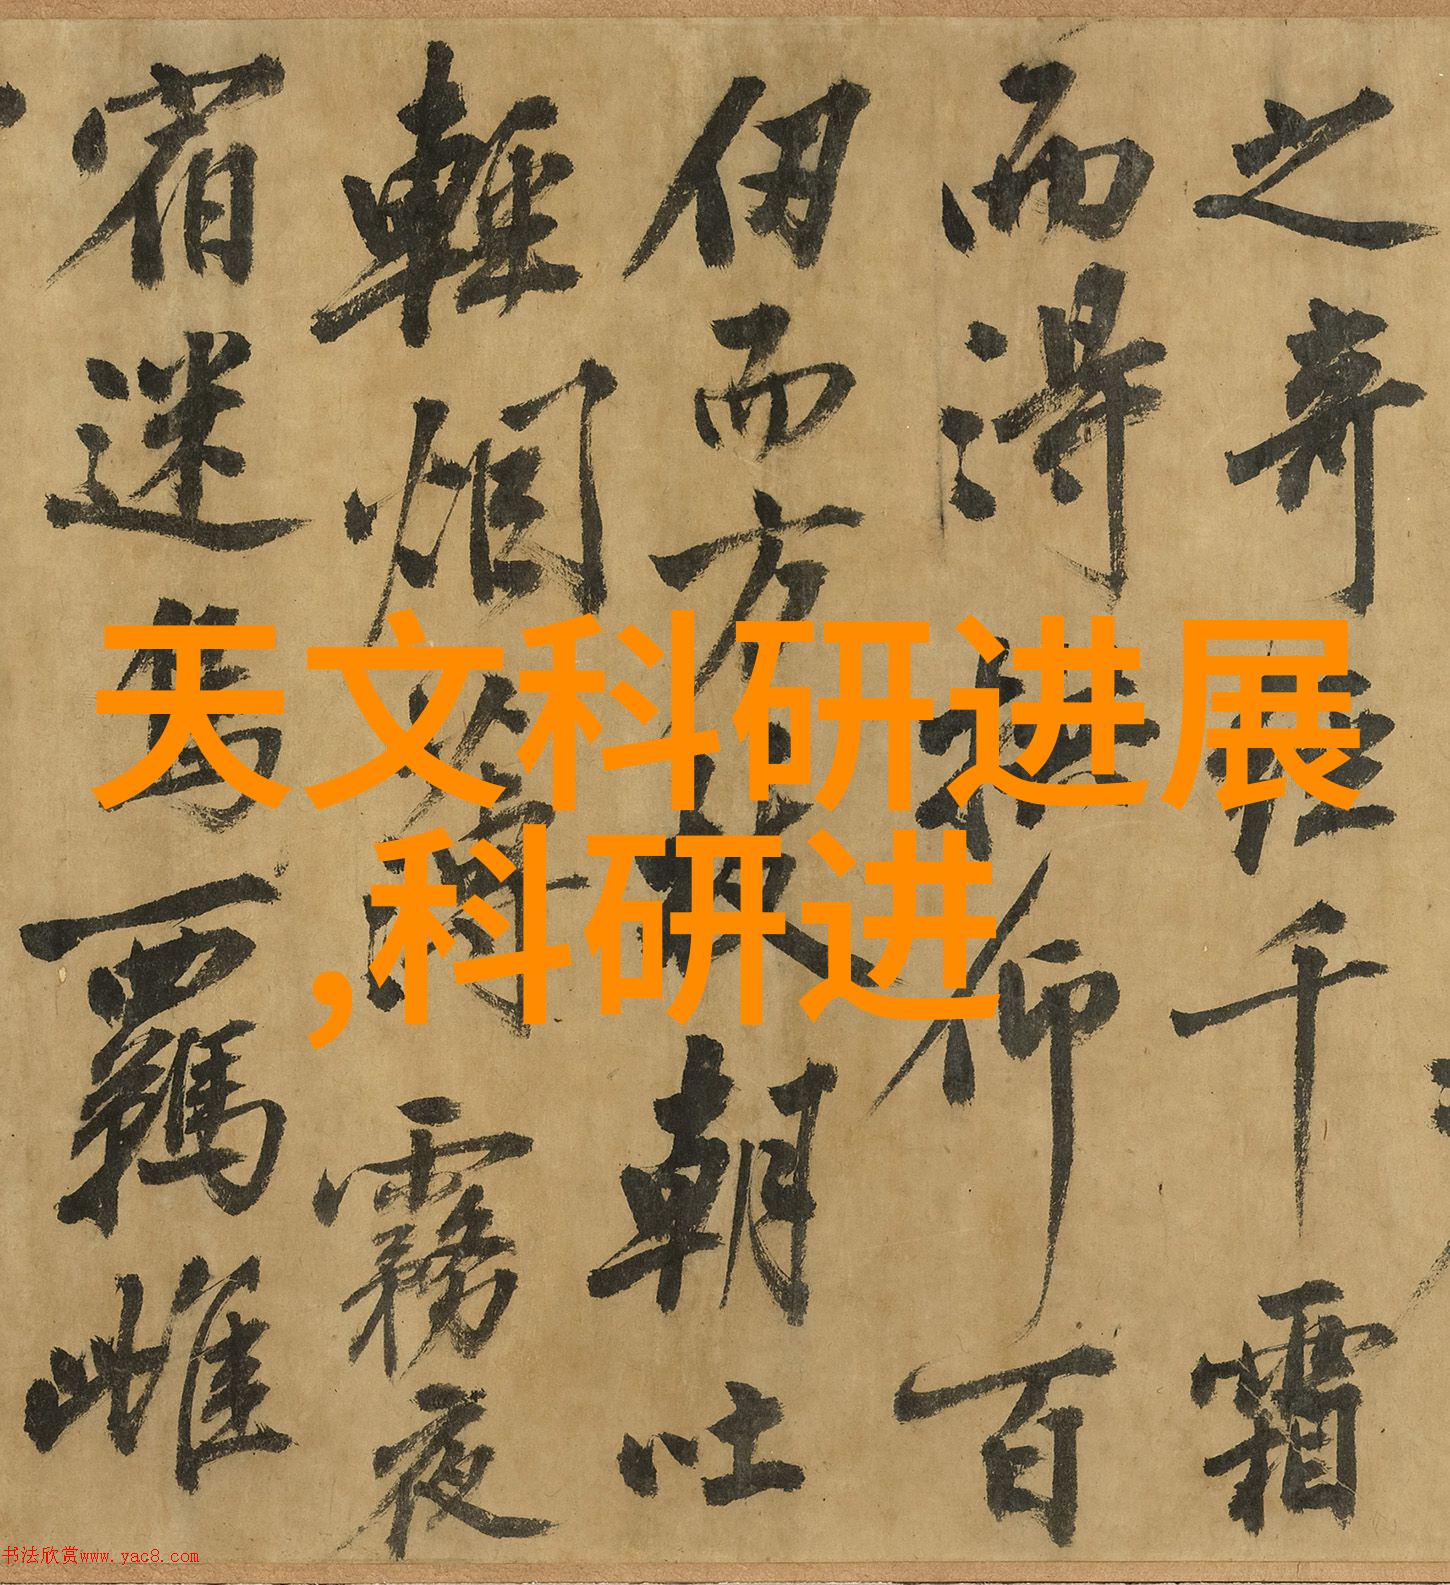 之奇千霜
而得仰百
仞而方朝吐
輕烟霧夜
宿迷羈雌
天文科研进展
,科研进
书法欣赏www.yac8.com